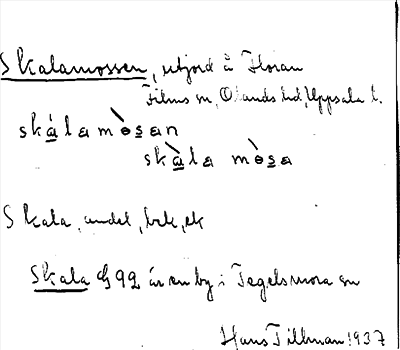 Skalamossen, utjord å Floran
Films sn, Olands hd, Uppsala l.
skálamò̀san
skàla mòsa
Skala, andel, bok, sk
Skala 992 är en by i Tegelsmora sn
Hans Tillman 1937